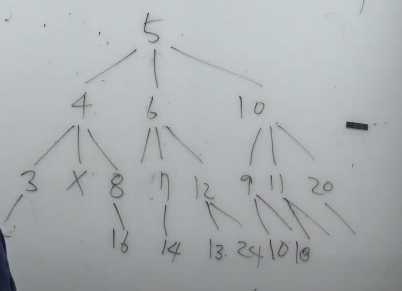 5
4 6 10
3 X 8 7 12 9 11 20
16 14 13 24 10 10